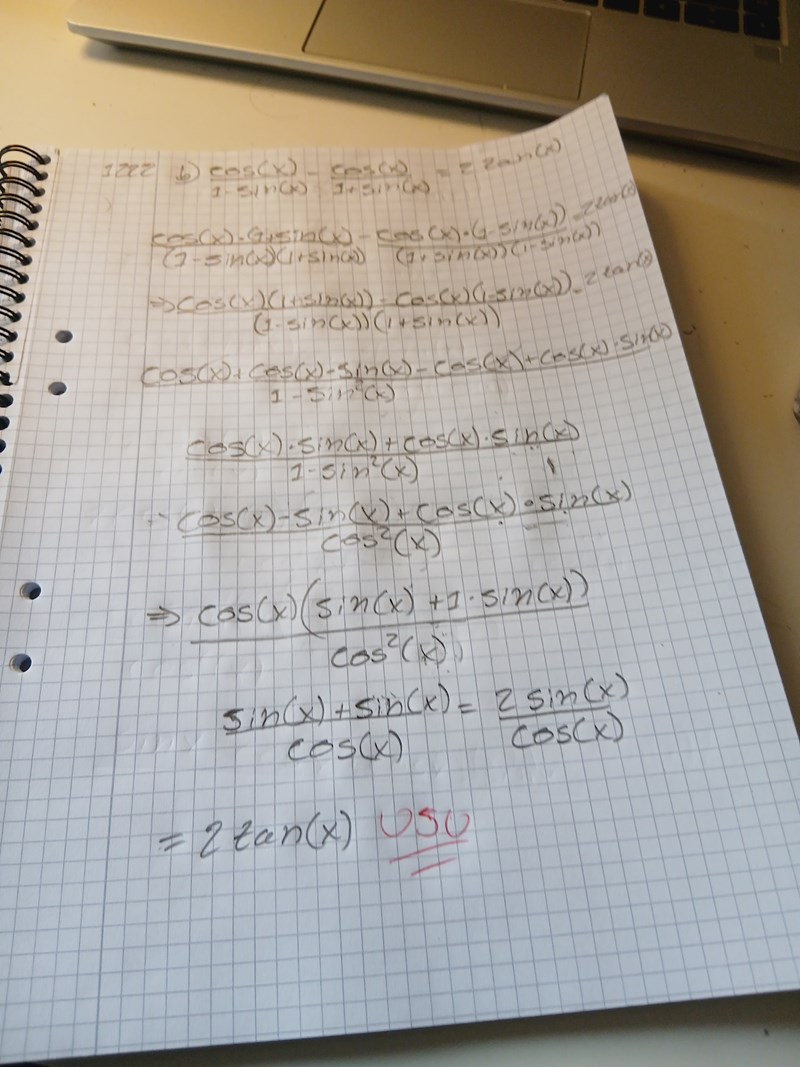 1222 b) cos(x)/1-sin(x) - cos(x)/1+sin(x) = 2 tan(x)
cos(x)·(1+sin(x)/(1-sin(x)(1+sin(x) - cos(x)·(1-sin(x))/(1+sin(x))(1-sin(x)) = 2tan(x)
⇒ cos(x)(1+sin(x)) - cos(x)(1-sin(x))/(1-sin(x))(1+sin(x)) = 2tan(x)
cos(x)+cos(x)·sin(x)-cos(x)+cos(x)·sin(x)/1-sin²(x)
cos(x)·sin(x)+cos(x)·sin(x)/1-sin²(x)
cos(x)-sin(x)+cos(x)·sin(x)/cos²(x)
⇒ cos(x)(sin(x)+1·sin(x))/cos²(x)
sin(x)+sin(x)/cos(x) = 2sin(x)/cos(x)
= 2tan(x) VSV